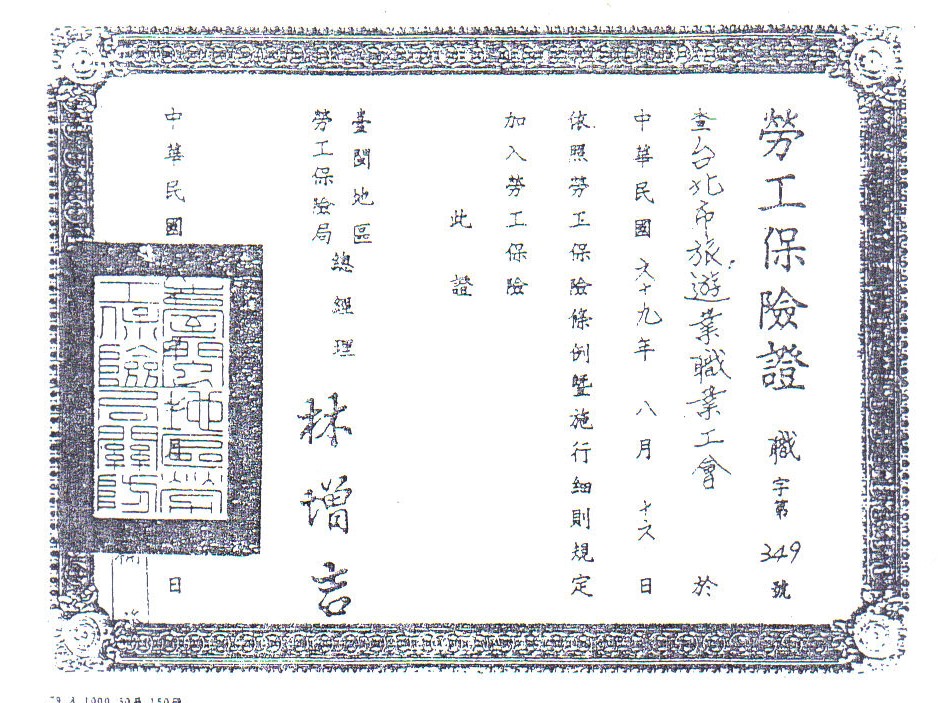 勞工保險證 職字第349號
查台北市旅遊業職業工會 於
中華民國六十九年 八月 十六日
依照勞工保險條例暨施行細則規定
加入勞工保險
此證
臺閩地區
勞工保險局
總經理 林增吉
中華民國 月 日
臺閩地區勞
工保險局關防